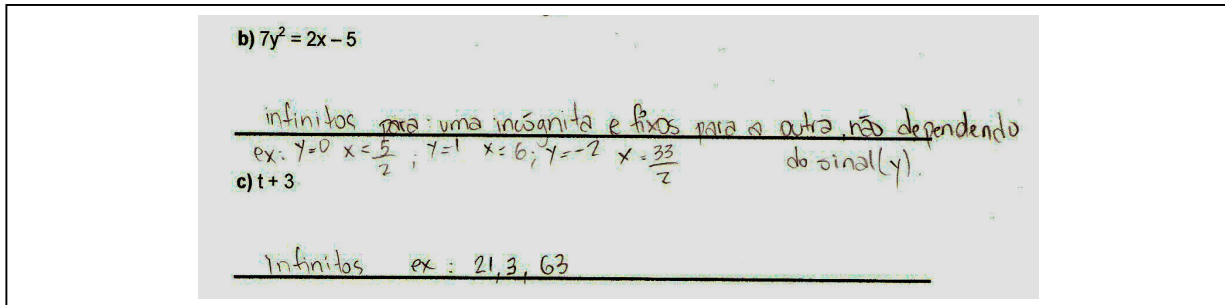 b) 7y² = 2x – 5
infinitos para uma incógnita e fixos para a outra, não dependendo
ex: y=0 x=5/2 ; y=1 x=6; y=-2 x=33/2 do sinal(y).
c) t + 3
Infinitos ex: 21, 3, 63